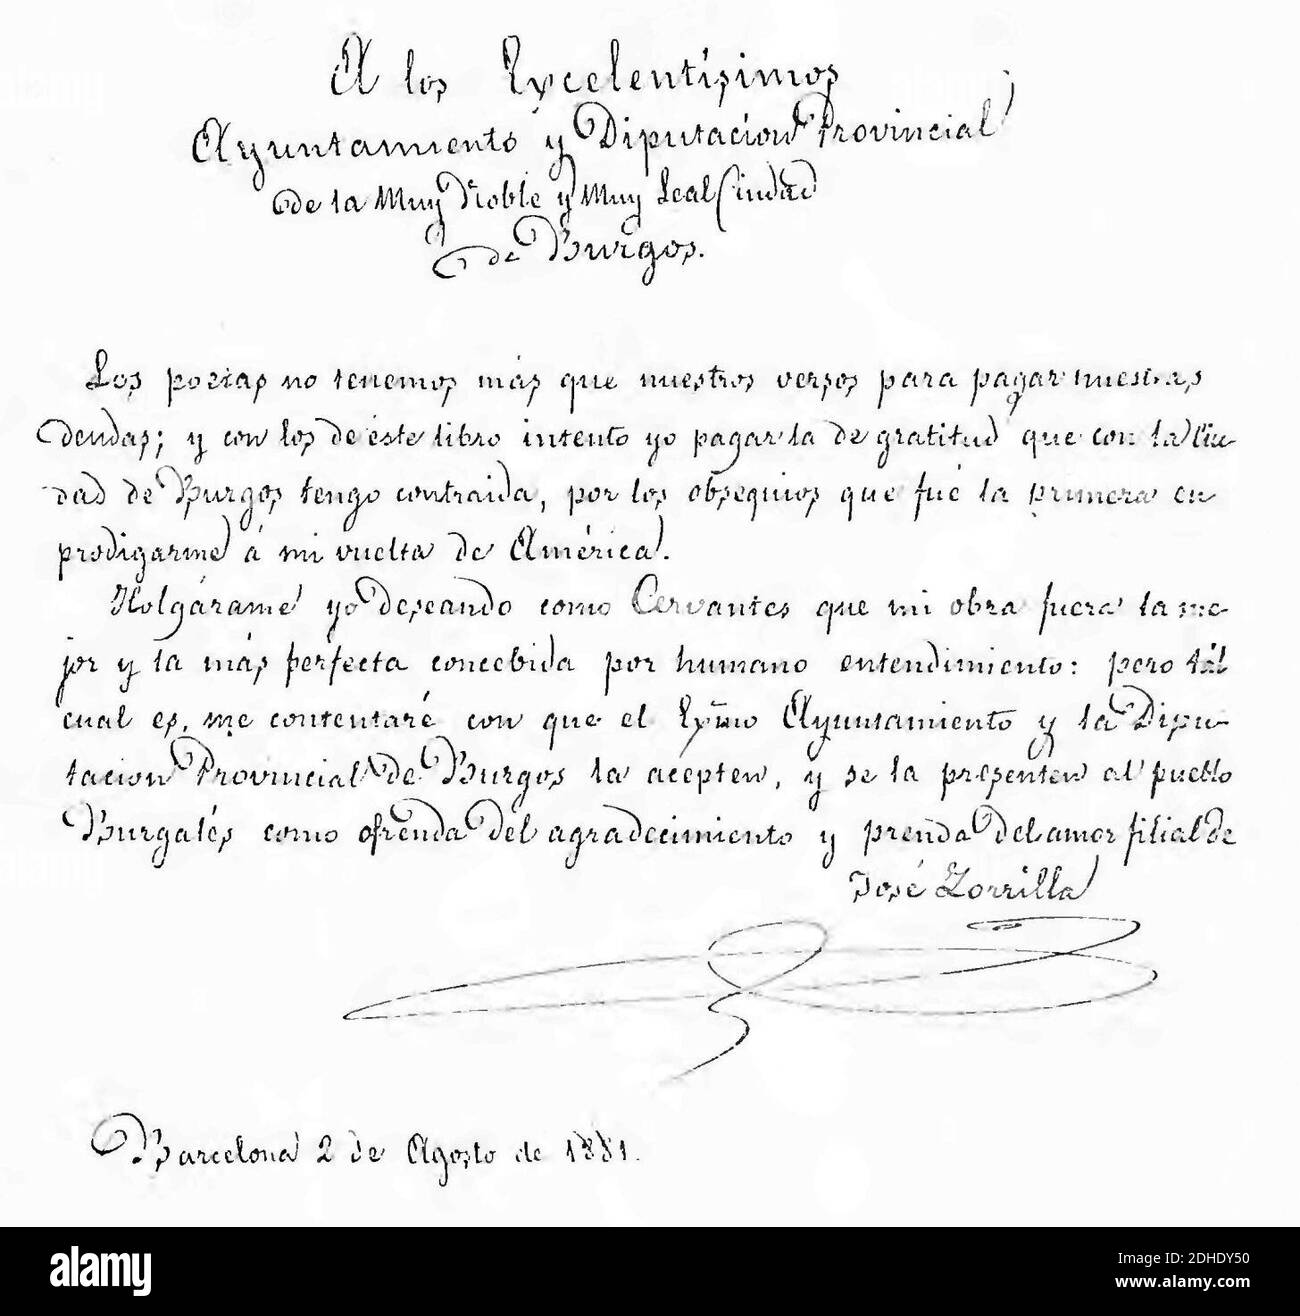 A los Excelentísimos
Ayuntamiento y Diputacion Provincial
de la Muy Noble y Muy Leal Ciudad
de Burgos.
Los poetas no tenemos más que nuestros versos para pagar nuestras
deudas; y con los de este libro intento yo pagar la de gratitud que con la Ciu-
dad de Burgos tengo contraida, por los obsequios que fué la primera en
prodigarme á mi vuelta de América.
Holgárame yo deseando como Cervantes que mi obra fuera la me-
jor y la más perfecta concebida por humano entendimiento: pero tál
cual es, me contentaré con que el Exmo Ayuntamiento y la Dipu-
tacion Provincial de Burgos la acepten, y se la presenten al pueblo
Burgalés como ofrenda del agradecimiento y prenda del amor filial de
José Zorrilla
Barcelona 2 de Agosto de 1881.
alamy
Image ID: 2DHDY50
www.alamy.com